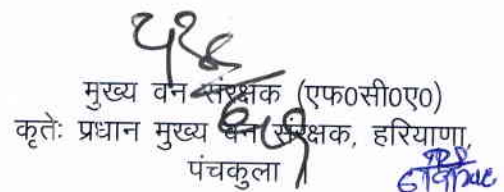 मुख्य वन संरक्षक (एफ0सी0ए0)
कृतेः प्रधान मुख्य वन संरक्षक, हरियाणा,
पंचकुला